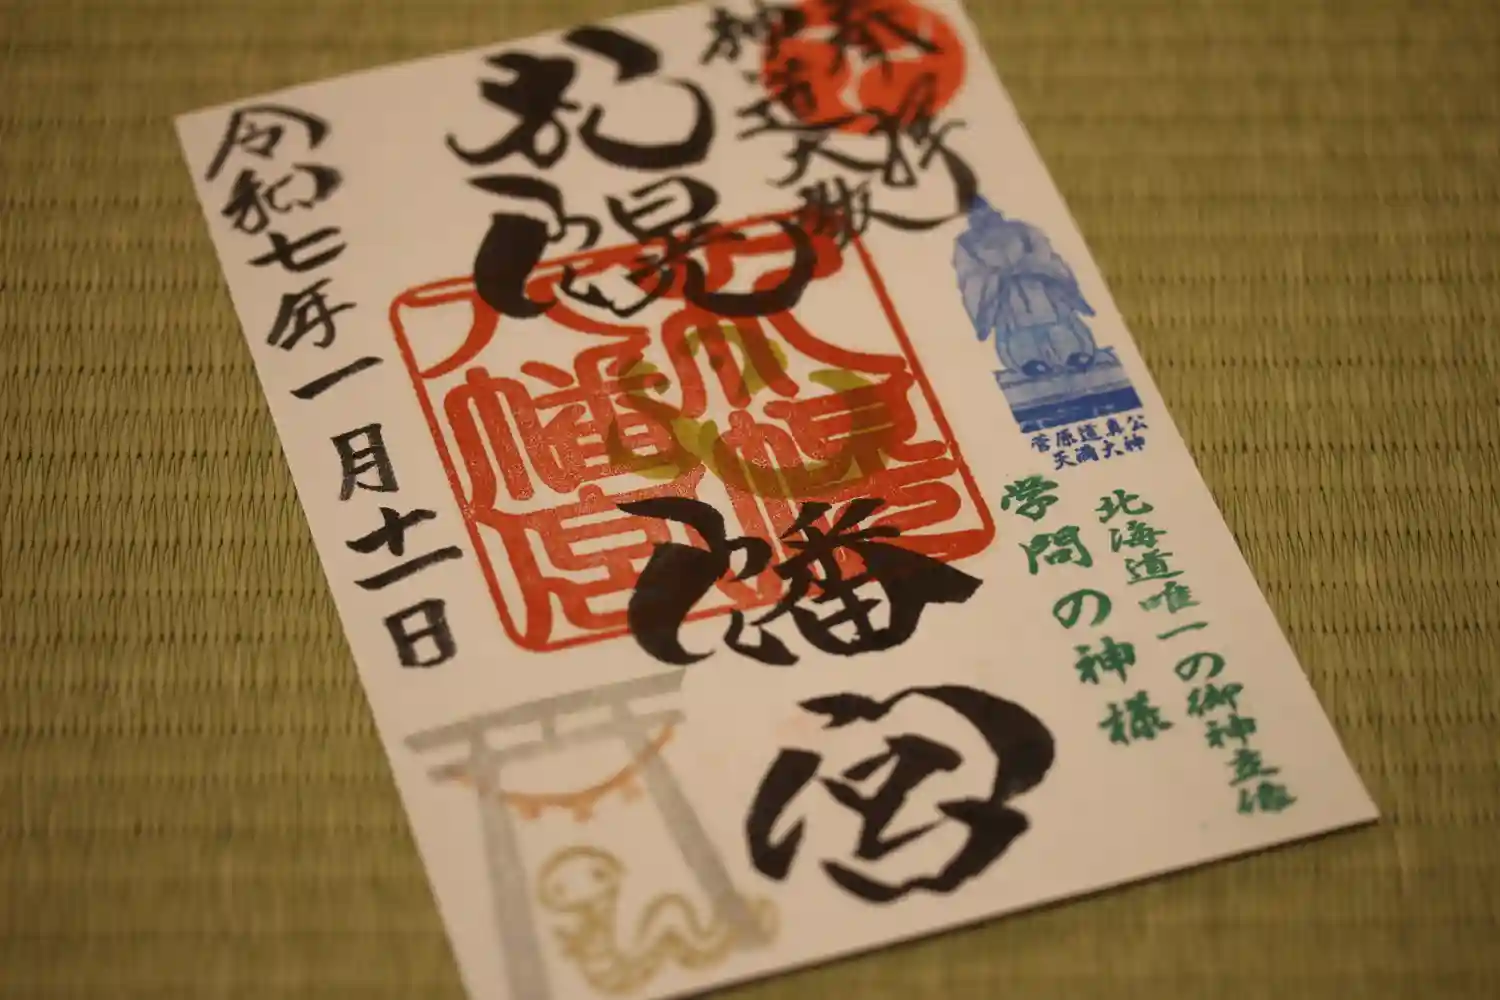 奉拝
神道大教
札幌
八幡宮
札幌
八幡宮
菅原道真公
天満大神
北海道唯一の御神立像
学問の神様
令和七年一月十一日